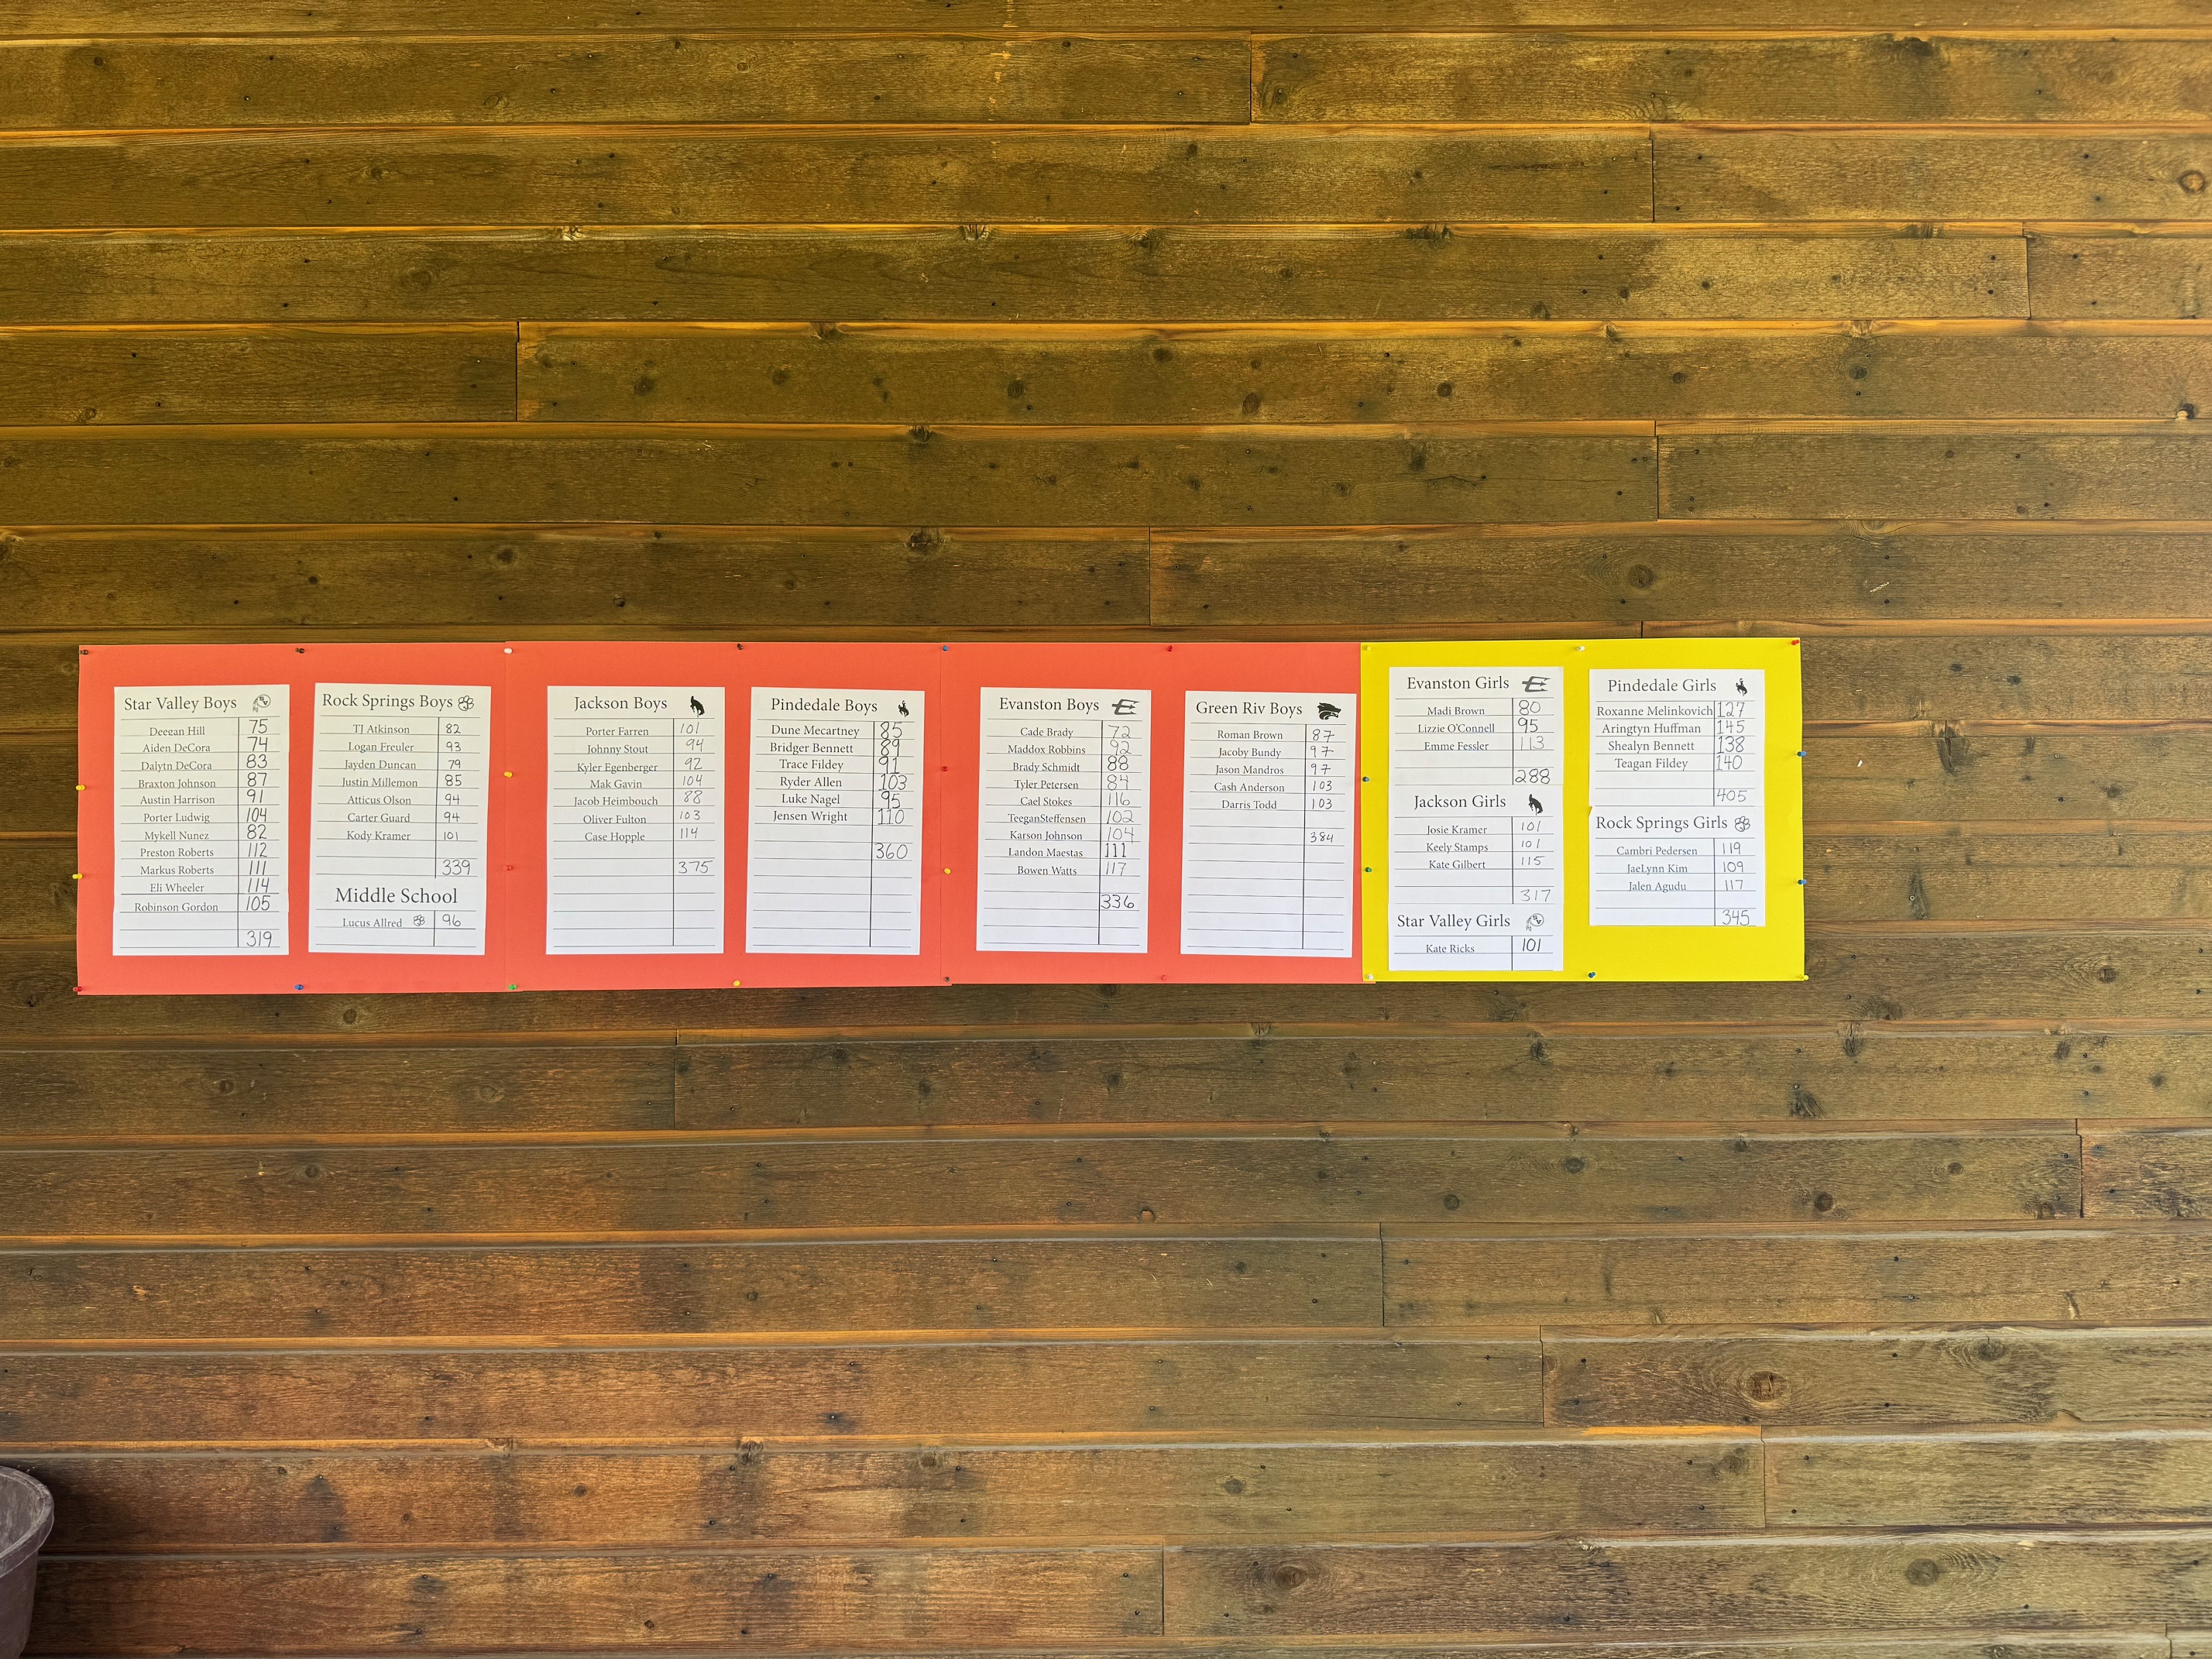 Star Valley Boys
Deegan Hill 75
Aiden DeCora 74
Dalytn DeCora 83
Braxton Johnson 87
Austin Harrison 91
Porter Ludwig 104
Mykell Nunez 82
Preston Roberts 112
Markus Roberts 111
Eli Wheeler 114
Robinson Gordon 105
319
Rock Springs Boys
TJ Atkinson 82
Logan Freuler 93
Jayden Duncan 79
Justin Millemon 85
Atticus Olson 94
Carter Guard 94
Kody Kramer 101
339
Middle School
Lucus Allred 96
Jackson Boys
Porter Farren 101
Johnny Stout 94
Kyler Egenberger 92
Mak Gavin 104
Jacob Heimbouch 88
Oliver Fulton 103
Case Hopple 114
375
Pindedale Boys
Dune Mecartney 85
Bridger Bennett 89
Trace Fildey 91
Ryder Allen 103
Luke Nagel 95
Jensen Wright 110
360
Evanston Boys E
Cade Brady 72
Maddox Robbins 92
Brady Schmidt 88
Tyler Petersen 84
Cael Stokes 116
TeeganSteffensen 102
Karson Johnson 104
Landon Maestas 111
Bowen Watts 117
336
Green Riv Boys
Roman Brown 87
Jacoby Bundy 97
Jason Mandros 97
Cash Anderson 103
Darris Todd 103
384
Evanston Girls E
Madi Brown 80
Lizzie O'Connell 95
Emme Fessler 113
288
Jackson Girls
Josie Kramer 101
Keely Stamps 101
Kate Gilbert 115
317
Star Valley Girls
Kate Ricks 101
Pindedale Girls
Roxanne Melinkovich 127
Aringtyn Huffman 145
Shealyn Bennett 138
Teagan Fildey 140
405
Rock Springs Girls
Cambri Pedersen 119
JaeLynn Kim 109
Jalen Agudu 117
345